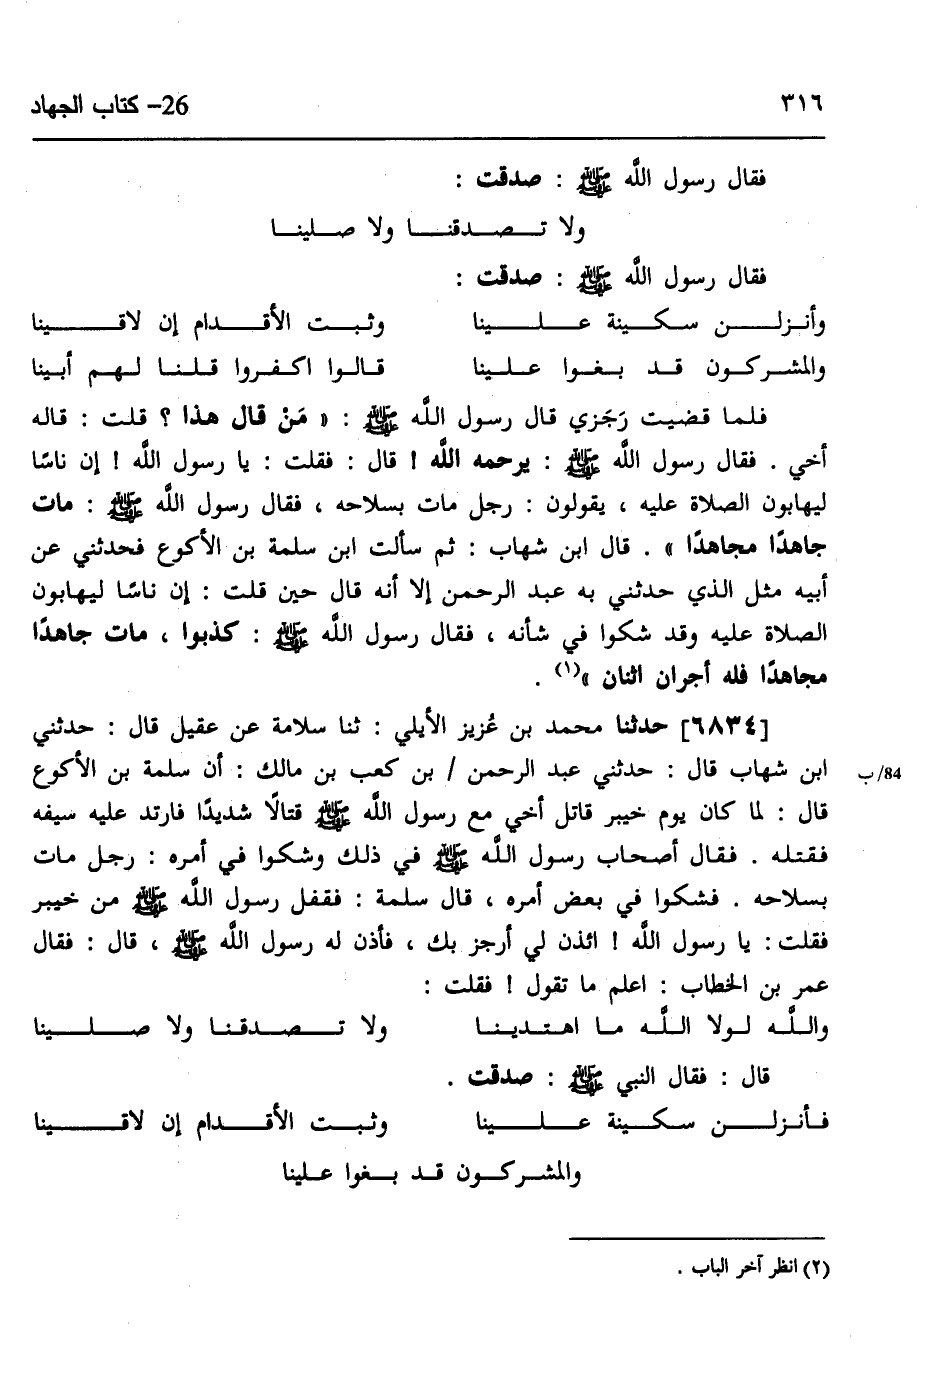 ٣١٦ 26- كتاب الجهاد
فقال رسول اللَّه ﷺ : صدقت :
ولا تـــصـــدقنـــا ولا صـــلينـــا
فقال رسول اللَّه ﷺ : صدقت :
وأنـزلـــن سـكـينة عـلـــينا وثـبـــت الأقـــدام إن لاقـــينا
والمشـركـون قـد بـغـوا عـلـينا قـالـوا اكـفـروا قـلـنـا لـهـم أبينا
فلما قضيت رَجَزي قال رسول اللَّه ﷺ : « مَنْ قال هذا ؟ قلت : قاله
أخي . فقال رسول اللَّه ﷺ : يرحمه اللَّه ! قال : فقلت : يا رسول اللَّه ! إن ناسًا
ليهابون الصلاة عليه ، يقولون : رجل مات بسلاحه ، فقال رسول اللَّه ﷺ : مات
جاهدًا مجاهدًا » . قال ابن شهاب : ثم سألت ابن سلمة بن الأكوع فحدثني عن
أبيه مثل الذي حدثني به عبد الرحمن إلا أنه قال حين قلت : إن ناسًا ليهابون
الصلاة عليه وقد شكوا في شأنه ، فقال رسول اللَّه ﷺ : كذبوا ، مات جاهدًا
مجاهدًا فله أجران اثنان »(١) .
[٦٨٣٤] حدثنا محمد بن عُزيز الأيلي : ثنا سلامة عن عقيل قال : حدثني
ابن شهاب قال : حدثني عبد الرحمن / بن كعب بن مالك : أن سلمة بن الأكوع 84/ب
قال : لما كان يوم خيبر قاتل أخي مع رسول اللَّه ﷺ قتالًا شديدًا فارتد عليه سيفه
فقتله . فقال أصحاب رسول اللَّه ﷺ في ذلك وشكوا في أمره : رجل مات
بسلاحه . فشكوا في بعض أمره ، قال سلمة : فقفل رسول اللَّه ﷺ من خيبر
فقلت : يا رسول اللَّه ! ائذن لي أرجز بك ، فأذن له رسول اللَّه ﷺ ، قال : فقال
عمر بن الخطاب : اعلم ما تقول ! فقلت :
واللَّـه لـولا اللَّـه مـا اهـتـدينـا ولا تـــصـدقـنـا ولا صـــلـــينا
قال : فقال النبي ﷺ : صدقت .
فـأنـزلـــن سـكـينة عـلـــينا وثـبـــت الأقـــدام إن لاقـــينا
والمشـركـون قـد بـغوا عـلينا
(٢) انظر آخر الباب .